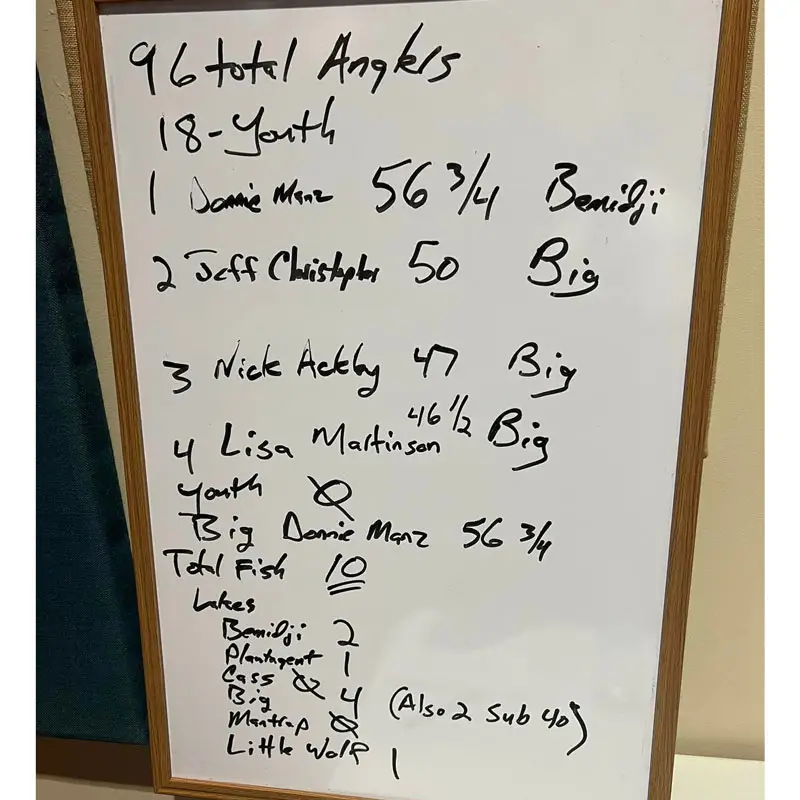 96 total Anglers
18-Youth
1 Donnie Manz 56 3/4 Bemidji
2 Jeff Christopher 50 Big
3 Nick Ackley 47 Big
4 Lisa Martinson 46 1/2 Big
Youth Ø
Big Donnie Manz 56 3/4
Total Fish 10
Lakes
Bemidji 2
Plantagent 1
Cass Ø
Big 4 (Also 2 Sub 40)
Mantrap Ø
Little Wolf 1